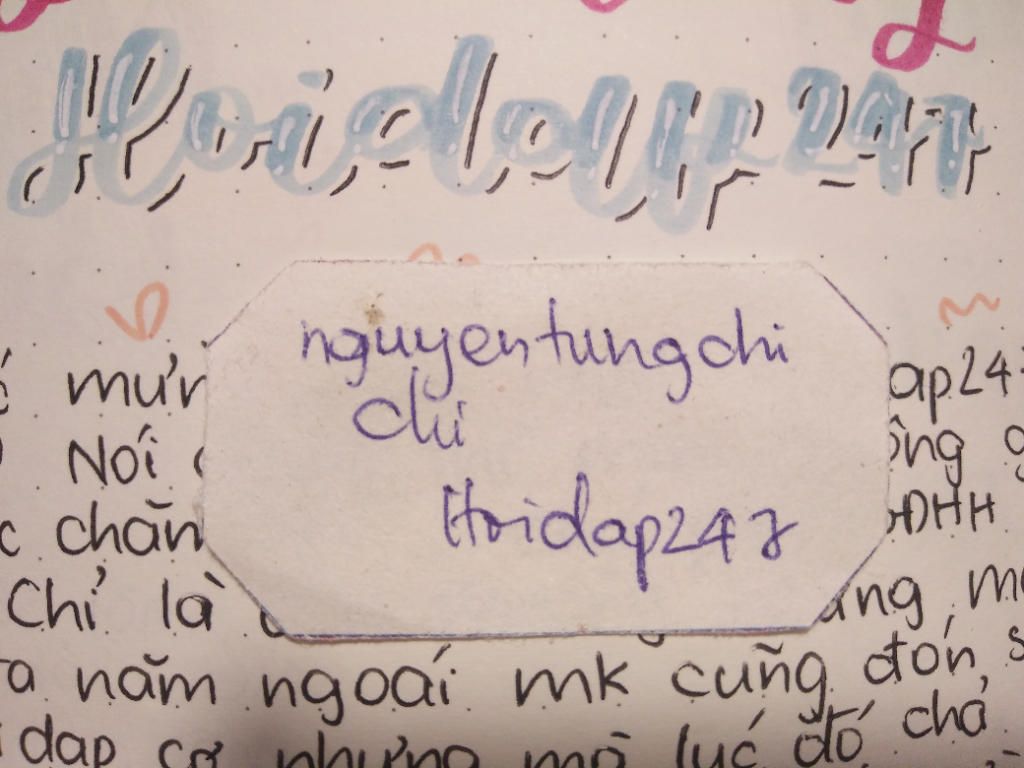 Hoidap247
nguyentungchi
chi
Hoidap247
mừn ap247
Nói ông
chăn ĐHH
Chỉ là
năm ngoái mk cũng đón
dap cơ nhưng mà lúc đó chả